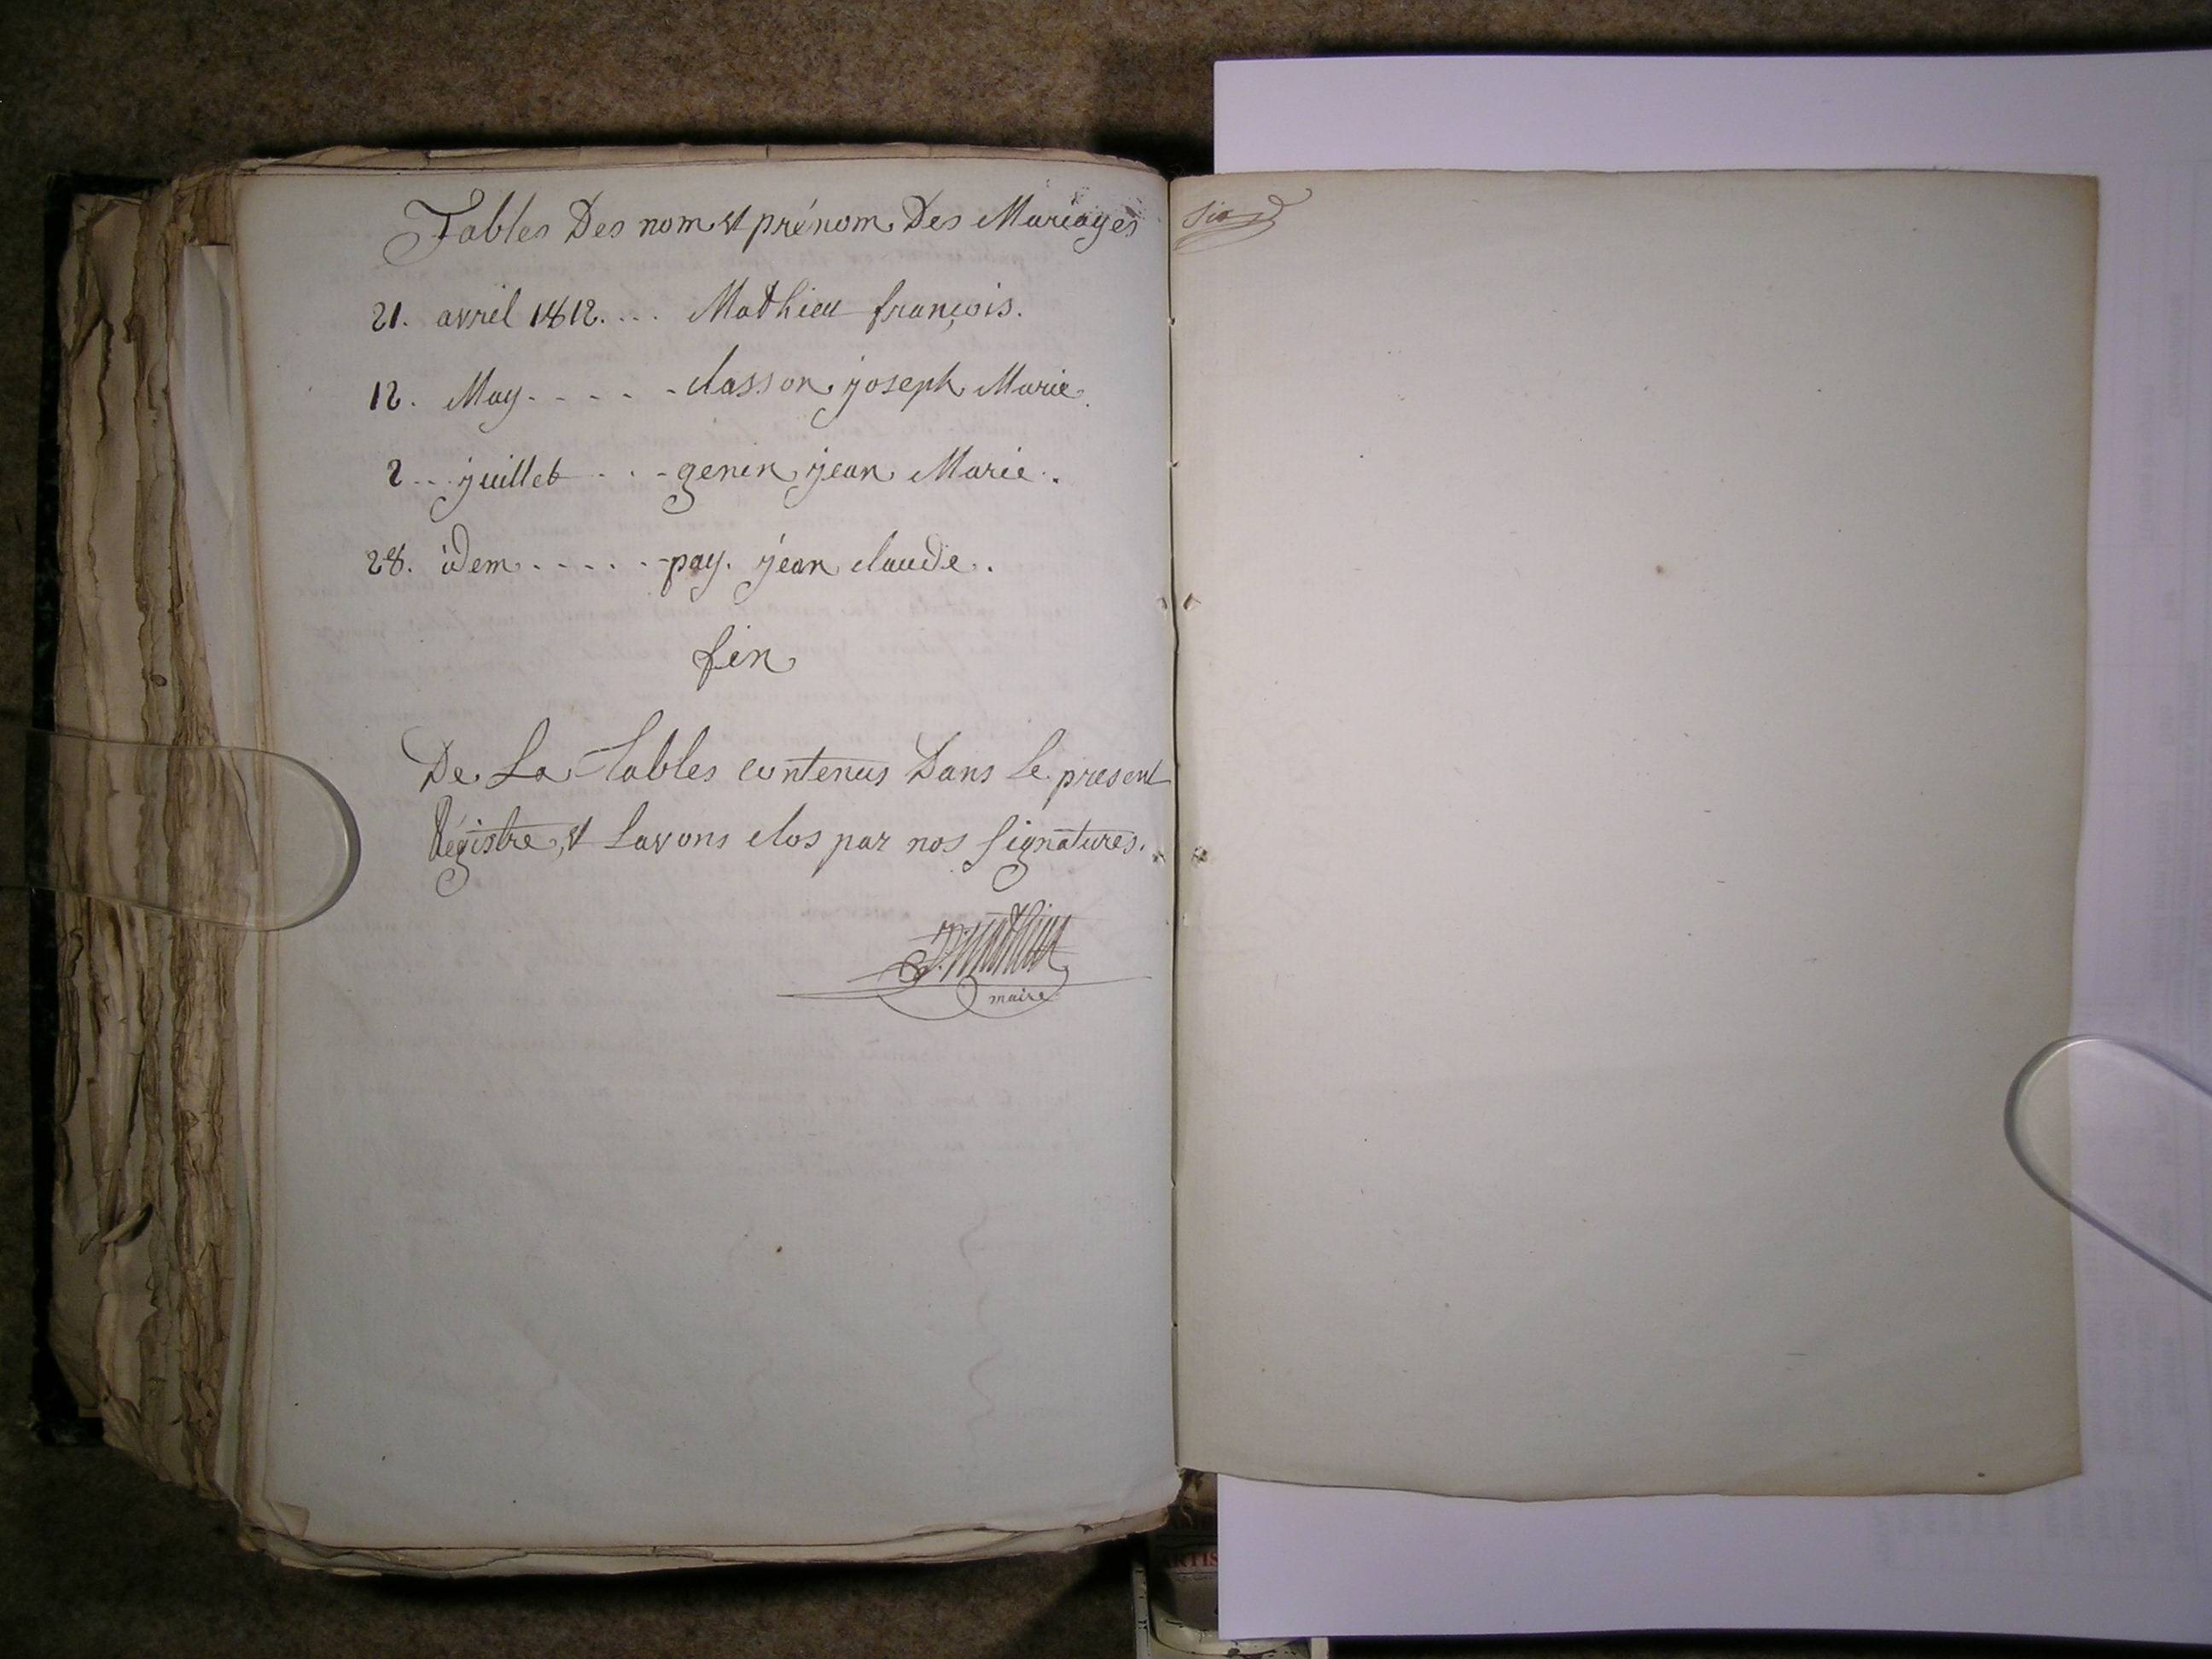 Tables Des nom et prénom Des Mariages
21. avril 1812.... Mathieu françois.
12. May - - - - - classon joseph Marie.
2 - - juillet - - - genin jean Marie.
28. idem - - - - - pay. jean claude.
fin
De La Tables contenus Dans Le present
Régistre, et Lavons clos par nos Signatures.
Mathieu
maire
Six